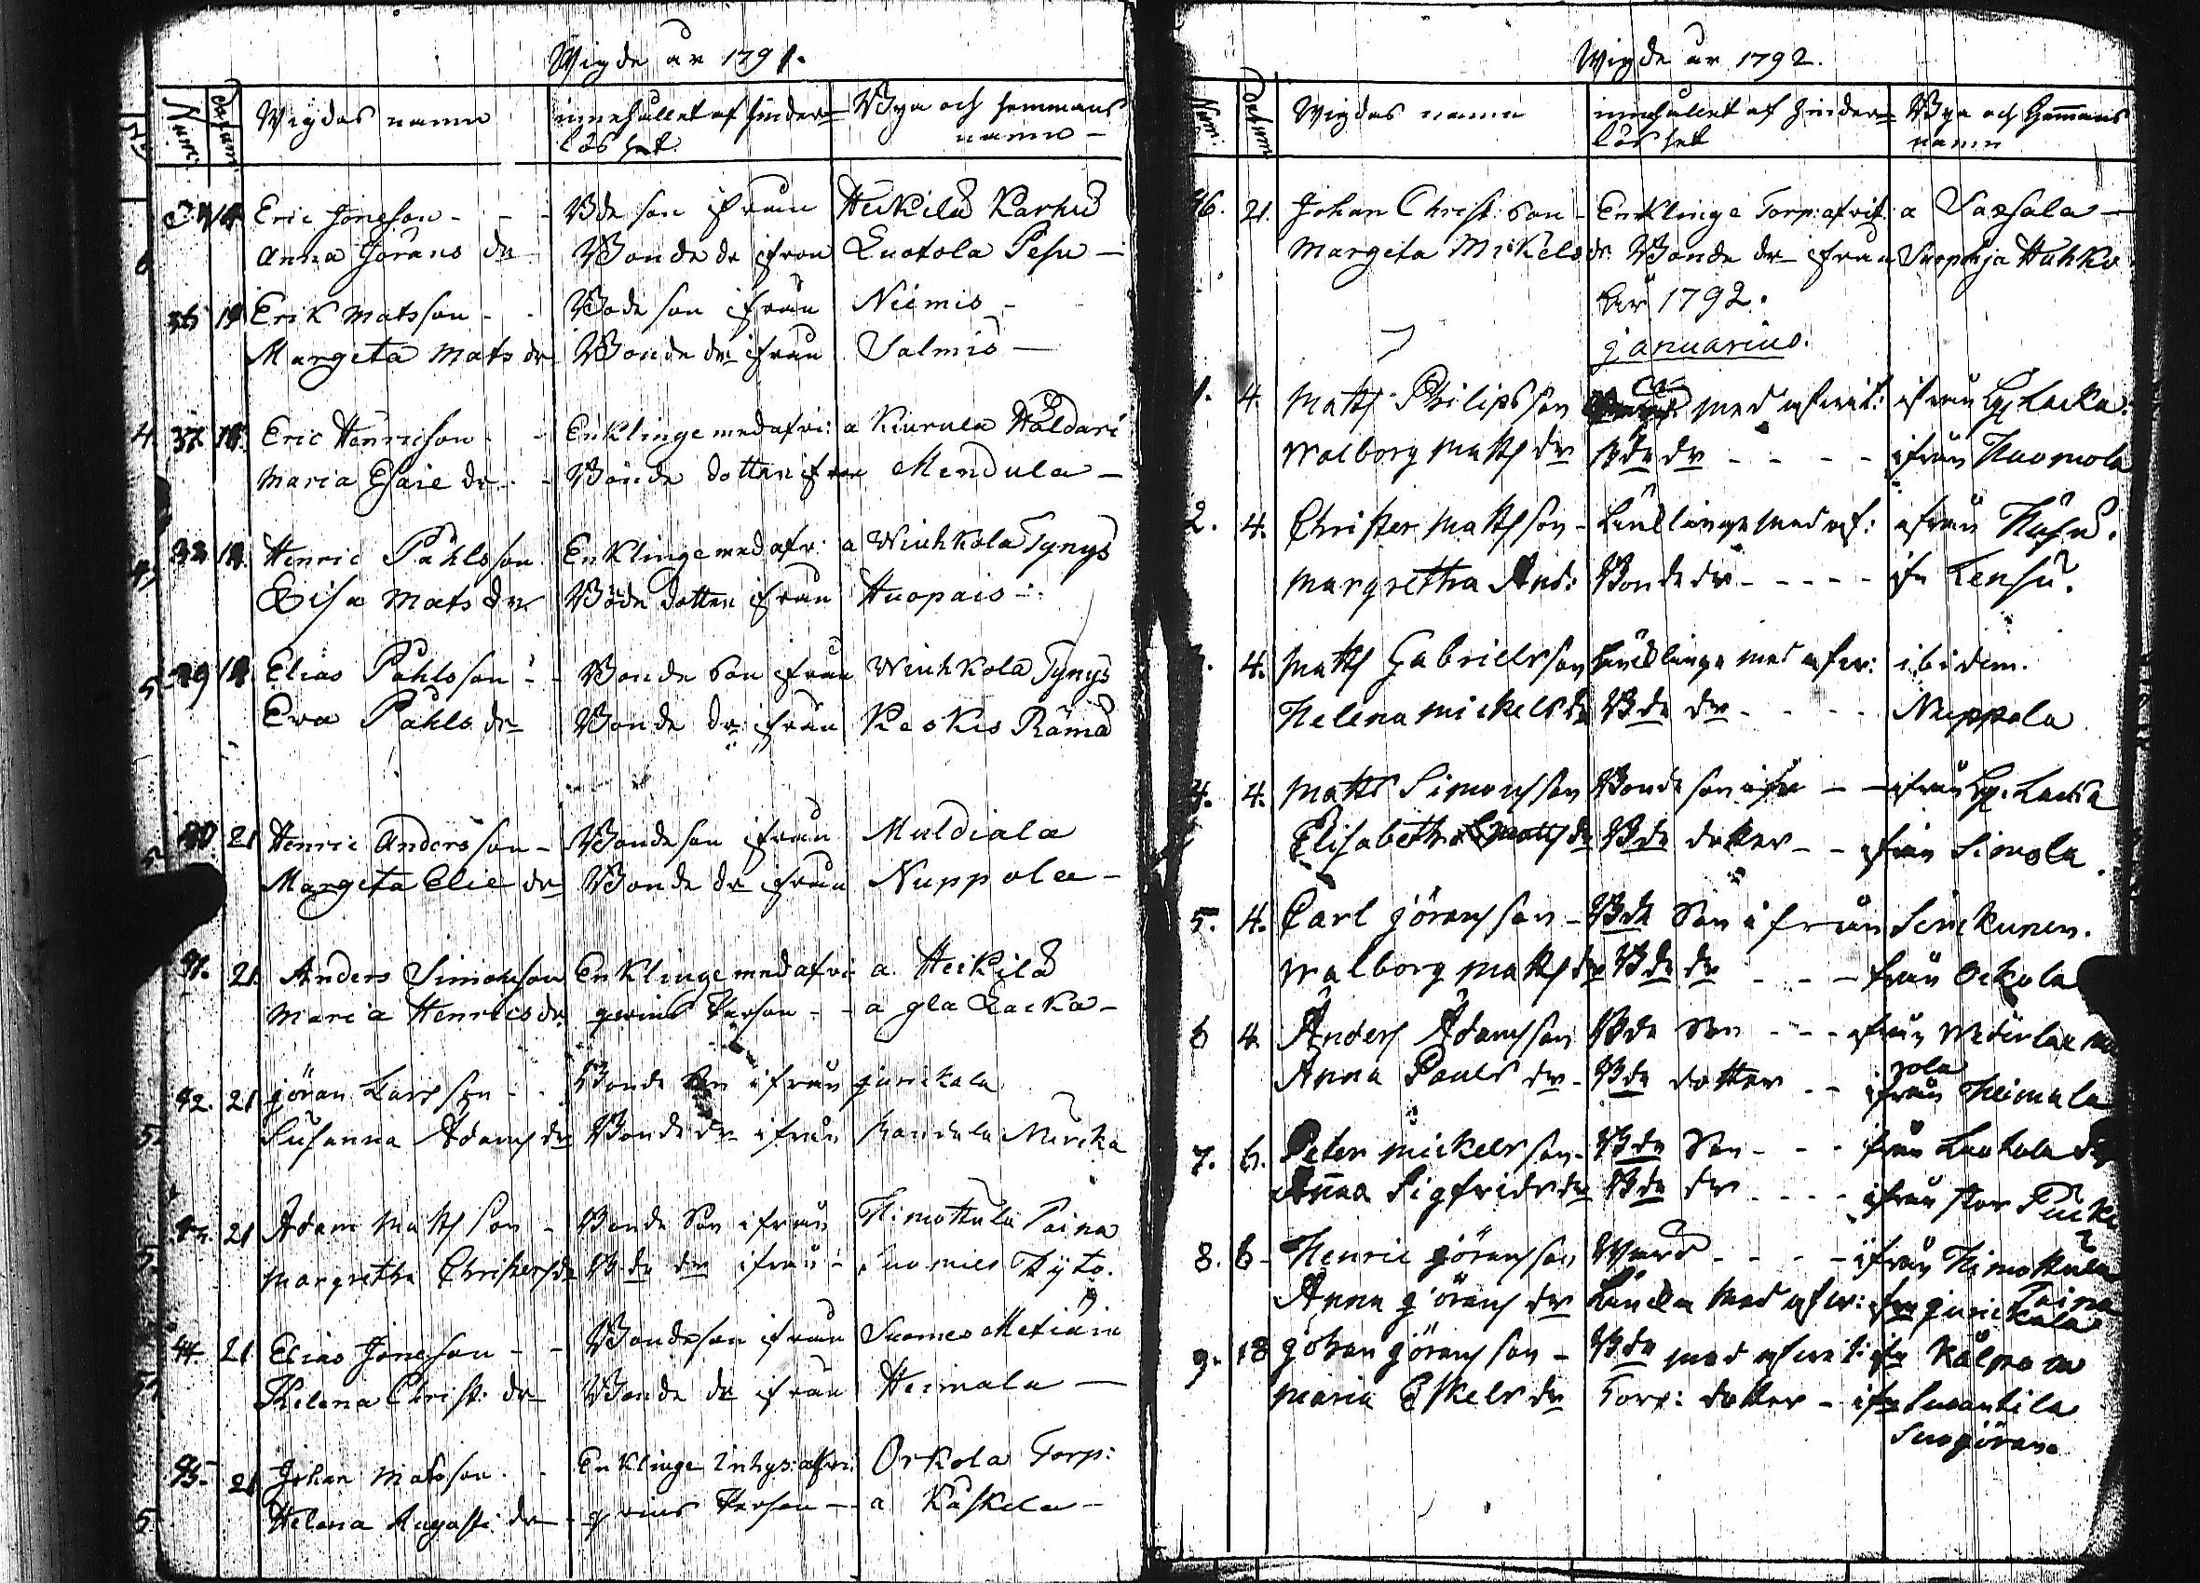 Wigde år 1791.
Num: Datum Wigdas namn innehållet af hinder= Bya och hemmans
löshet. namn –
14 Eric Jönsson - - - Bde son ifrån Heikilä Karhu
Anna Görans dr Bonde dr ifron Luotola Pesu –
36 19 Erik Matsson - - Bode son ifrån Niemis -
Margeta Mats dr Bonde dr ifrån Salmis –
37. 18. Eric Henricson - - Enklinge med afvi: a Kiurula
Maria Esaie dr. - Bonde dotter ifrån Mendula –
38 18. Henric Påhlsson Enklinge med afv: a Wiuhkola Tynys
Elisa Mats dr Bode dotter ifrån Huopais
39 18 Elias Påhlsson - - Bonde son ifrån Wiuhkola Tynys
Eva Påhls dr Bonde dr ifrån Keskis Rämä
40 21 Henric Andersson - Bonde son ifrån Muldiala
Margeta Elie dr Bonde dr ifrån Nuppola –
41. 21. Anders Simonson Enklinge med afvi a Heikilä
Maria Henrics dr. person - - a gla Lacka –
42. 21 Jöran Larsson - - Bonde Son ifrån Junickala
Susanna Adams dr Bonde dr ifrån Kandula
43. 21 Adam Matsson - Bonde Son ifrån Himottula Toina
Margretha Christers dr Bde dr ifrån - Suomies Hyto.
44. 21 Elias Jönsson - - Bonde son ifrån Suomes
Helena Christ: dr Bonde dr ifrån Heimala –
45. 21 Johan Matsson. - Enklinge Inhys: afvi: Orkola Torp:
Helena Augusti dr person – a Kaskela –
Wigde år 1792.
Num: Datum Wigdas namn innehållet af hinder= Bya och Hemmans
löshet namn
46. 21. Johan Christ: son - Enklinge Torp: afvit: a Saxala –
Margeta Mickels dr. Bonde dr ifrån Suopohja Huhko
År 1792.
Januarius.
1. 4. Matts Philipsson med afvit: ifrån Lacka.
Walborg Matts dr Bde dr - - - - ifrån Huomola
2. 4. Christer Mattsson - Änklinge med af: ifrån
Margretha And: Bonde dr - - - - ifr Lensu.
4. Matts Gabrielsson Änklinge med afvi: ibidem.
Helena Mickels dr Bde dr - - - Nuppola
4. 4. Matts Simonsson Bonde son - - ifrån Lacka
Elisabetha Matts dr Bde dotter - - ifrån Simola
5. 4. Carl Jöransson - Bde Son ifrån Sinkunen.
Walborg Matts dr Bde dr - - - från Ockola
6 4. Anders Adamsson Bde Son - - - ifrån
Anna Pauls dr - Bde dotter - - ifrån Heimala
7. 6. Peter Mickelsson - Bde Son - - - från Luotola
Anna Sigfrids dr Bde dr - - - - ifrån stor
8. 6 - Henric Jöransson - - - - ifrån Himottula
Toina
Anna Jörans dr med afvi: från Junickala
9. 18 Johan Jöransson - Bde med afvit: ifr Kälpea
Maria Eskels dr Torp: dotter - ifr